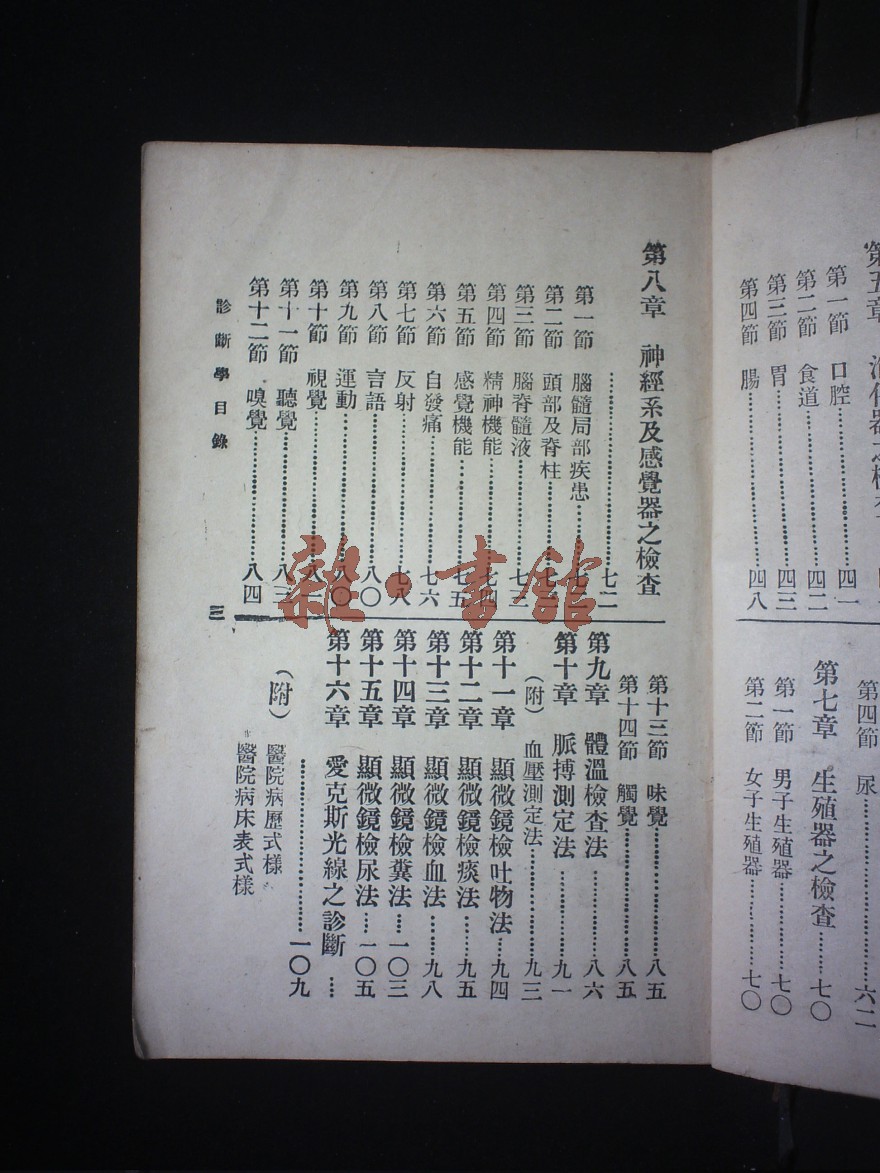 第五章
第一節 口腔……四一
第二節 食道……四二
第三節 胃……四三
第四節 腸……四八
第四節 尿……六二
第七章 生殖器之檢查……七〇
第一節 男子生殖器……七〇
第二節 女子生殖器……七〇
第八章 神經系及感覺器之檢查
……七二
第一節 腦髓局部疾患……七二
第二節 頭部及脊柱……七
第三節 腦脊髓液……七三
第四節 精神機能……七四
第五節 感覺機能……七五
第六節 自發痛……七六
第七節 反射……七八
第八節 言語……八〇
第九節 運動……八〇
第十節 視覺……八一
第十一節 聽覺……八三
第十二節 嗅覺……八四
第十三節 味覺……八五
第十四節 觸覺……八五
第九章 體溫檢查法……八六
第十章 脈搏測定法……九一
(附) 血壓測定法……九三
第十一章 顯微鏡檢吐物法……九四
第十二章 顯微鏡檢痰法……九五
第十三章 顯微鏡檢血法……九八
第十四章 顯微鏡檢糞法……一〇三
第十五章 顯微鏡檢尿法……一〇五
第十六章 愛克斯光線之診斷……
……一〇九
(附) 醫院病歷式樣
醫院病床表式樣
診斷學目錄
三
雜·書館